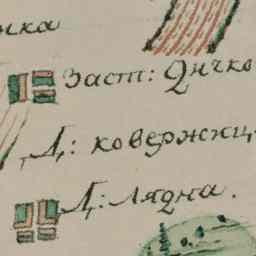 нка
Заст: Яичко
Д: ковержиц
Д: Лядна.